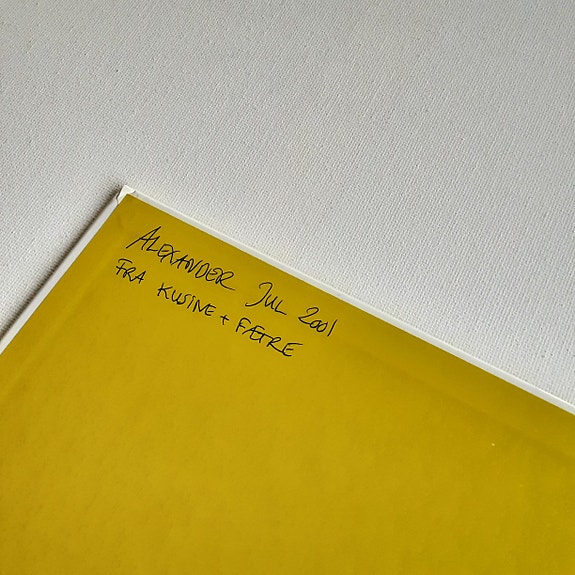 ALEXANDER JUL 2001
FRA KUSINE + FÆTRE